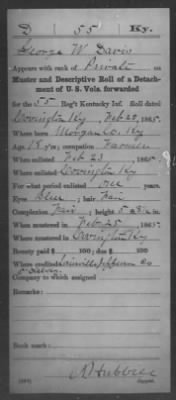 D 55 Ky.
George W Davis
Appears with rank of Private on
Muster and Descriptive Roll of a Detach-
ment of U. S. Vols. forwarded
for the 55 Reg't Kentucky Inf. Roll dated
Covington Ky Feb 28, 1865.
Where born Morgan Co. Ky
Age 18 y'rs; occupation Farmer
When enlisted Feb 23, 1865.
Where enlisted Covington Ky
For what period enlisted one years.
Eyes Blue; hair Fair
Complexion Fair; height 5 ft. in.
When mustered in Feb 25, 1865.
Where mustered in Covington Ky
Bounty paid $ 100; due $ 100
Where credited Louisville Jefferson Co
Company to which assigned
Remarks:
Book mark:
Hubbell
Copyist.